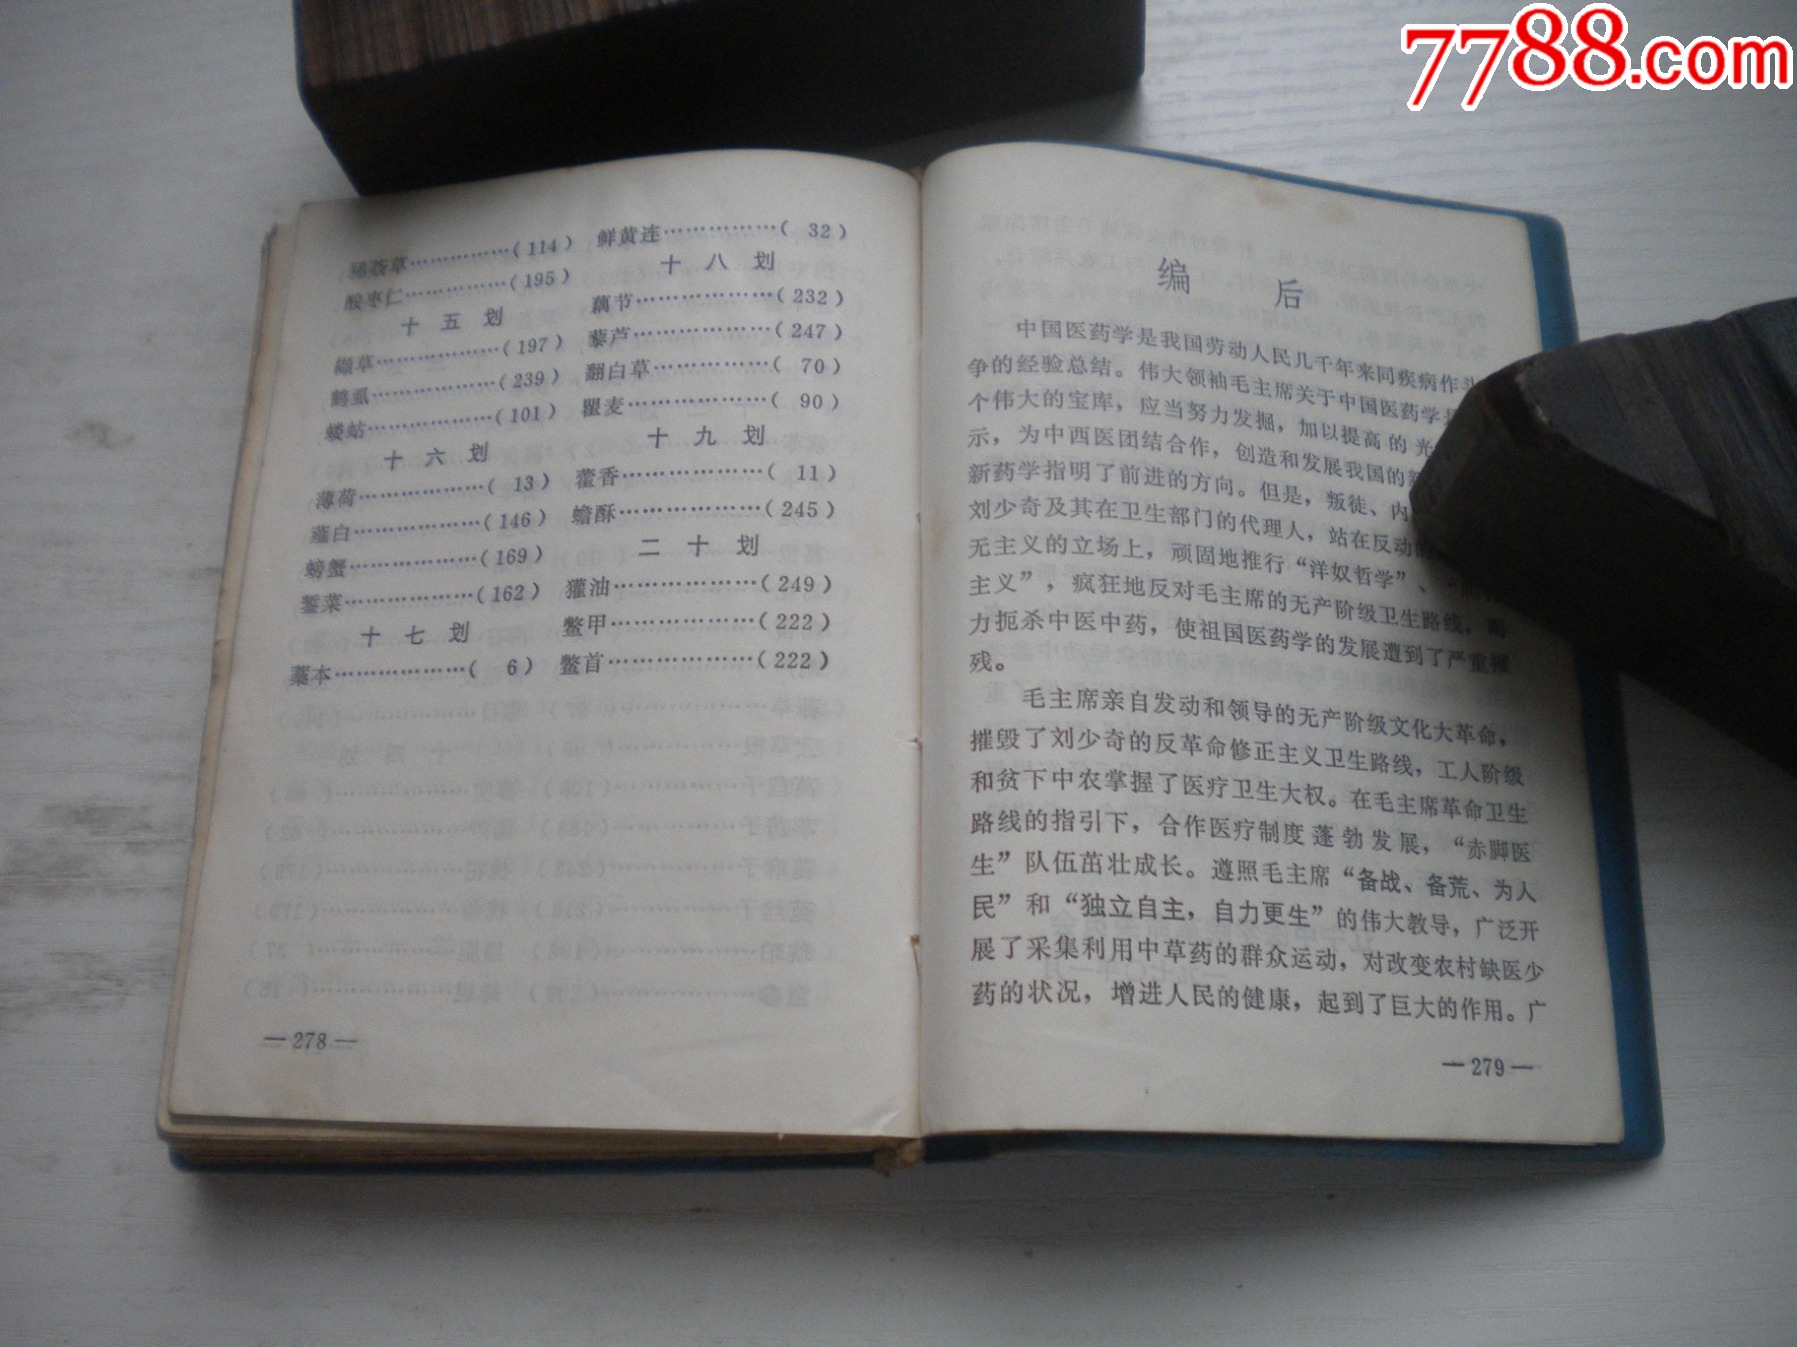 7788.com
豨莶草……………(114)
酸枣仁……………(195)
十五划
缬草………………(197)
鹤虱………………(239)
蝼蛄………………(101)
十六划
薄荷………………( 13)
薤白………………(146)
螃蟹………………(169)
蓥菜………………(162)
十七划
藁本………………( 6)
鲜黄连……………( 32)
十八划
藕节………………(232)
藜芦………………(247)
翻白草……………( 70)
瞿麦………………( 90)
十九划
藿香………………( 11)
蟾酥………………(245)
二十划
獾油………………(249)
鳖甲………………(222)
鳖首………………(222)
—278—
编后
中国医药学是我国劳动人民几千年来同疾病作
争的经验总结。伟大领袖毛主席关于中国医药学
个伟大的宝库,应当努力发掘,加以提高的光
示,为中西医团结合作,创造和发展我国的
新药学指明了前进的方向。但是,叛徒、内
刘少奇及其在卫生部门的代理人,站在反动的
无主义的立场上,顽固地推行“洋奴哲学”、
主义”,疯狂地反对毛主席的无产阶级卫生路线,竭
力扼杀中医中药,使祖国医药学的发展遭到了严重摧
残。
毛主席亲自发动和领导的无产阶级文化大革命,
摧毁了刘少奇的反革命修正主义卫生路线,工人阶级
和贫下中农掌握了医疗卫生大权。在毛主席革命卫生
路线的指引下,合作医疗制度蓬勃发展,“赤脚医
生”队伍茁壮成长。遵照毛主席“备战、备荒、为人
民”和“独立自主,自力更生”的伟大教导,广泛开
展了采集利用中草药的群众运动,对改变农村缺医少
药的状况,增进人民的健康,起到了巨大的作用。广
—279—